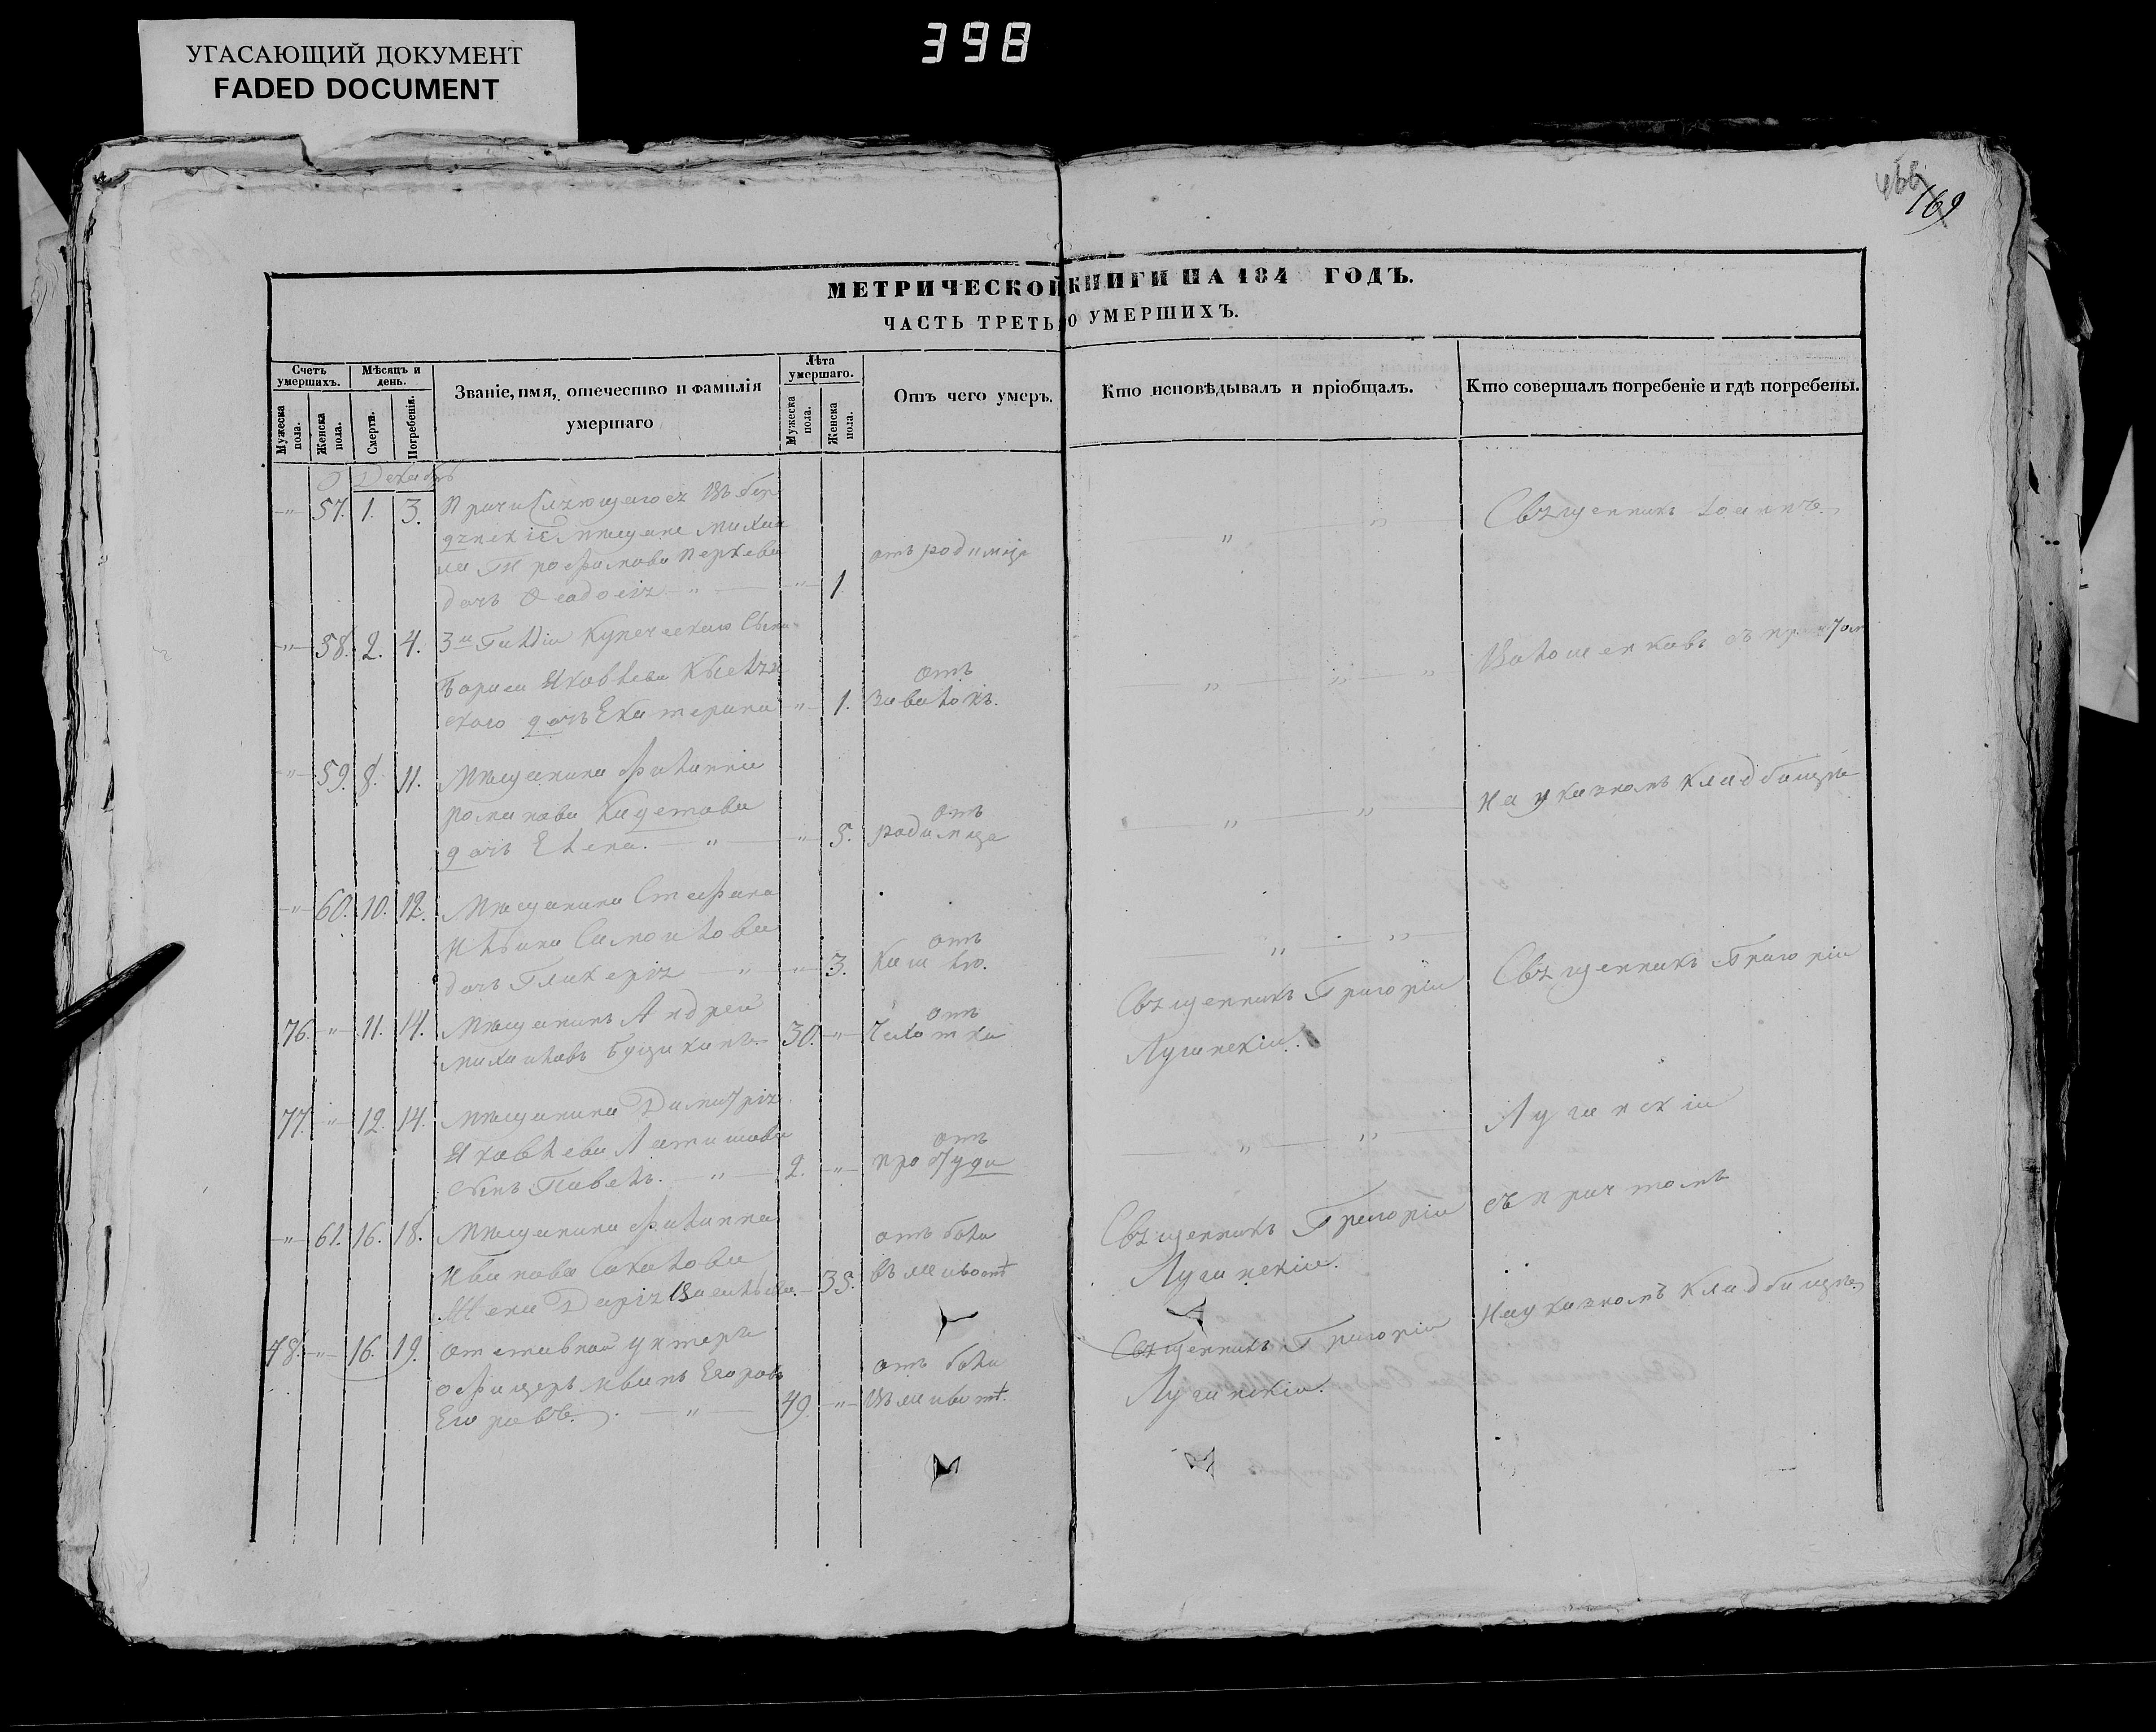 398
УГАСАЮЩИЙ ДОКУМЕНТ
FADED DOCUMENT
466
169
МЕТРИЧЕСКОЙ КНИГИ НА 184 ГОДЪ.
ЧАСТЬ ТРЕТЬ О УМЕРШИХЪ.
Счетъ умершихъ.
Мужеска пола.
Женска пола.
Мѣсяцъ и день.
Смерти.
Погребенія.
Званіе, имя, отечество и фамилія
умершаго
Лѣта умершаго.
Мужеска пола.
Женска пола.
Отъ чего умеръ.
Кто исповѣдывалъ и пріобщалъ.
Кто совершалъ погребеніе и гдѣ погребены.
Декабрь
" 57. 1. 3.
мѣщане Михаи
ла Трофимова
дочь Феодосія " " 1. отъ родимца
" "
Священникъ Іоаннъ
" 58. 2. 4. 3й Гилдіи Купеческаго Сына
Бориса Яковлева
дочь Екатерина " 1. отъ
" " "
съ причтом
" 59. 8. 11. Мѣщанина Филиппа
Романова Кадетова
дочь Елена. " " 5. отъ родимца
" "
На указномъ кладбищѣ
" 60. 10. 12. Мѣщанина Стефана
Самойлова
дочь Гликерія " " 3. отъ кашлю.
" "
76. " 11. 14. Мѣщанинъ Андрей
Михайловъ 30. " отъ Чахотки
Священникъ Григорій
Лугинскій.
Священникъ Григорій
77. " 12. 14. Мѣщанина Димитрія
Яковлева Латишова
сынъ Павелъ. " 2. " отъ простуди
" "
Лугинскій
" 61. 16. 18. Мѣщанина Филиппа
Иванова Соколова
Жена Дарія Васильева. 35. отъ боли
въ животѣ
Священникъ Григорій
Лугинскій.
съ причтомъ
78. " 16. 19. Отставной унтеръ
офицеръ Иванъ Егоровъ
Егоровъ. " 49. " отъ боли
въ животѣ.
Священникъ Григорій
Лугинскій.
На указномъ кладбищѣ